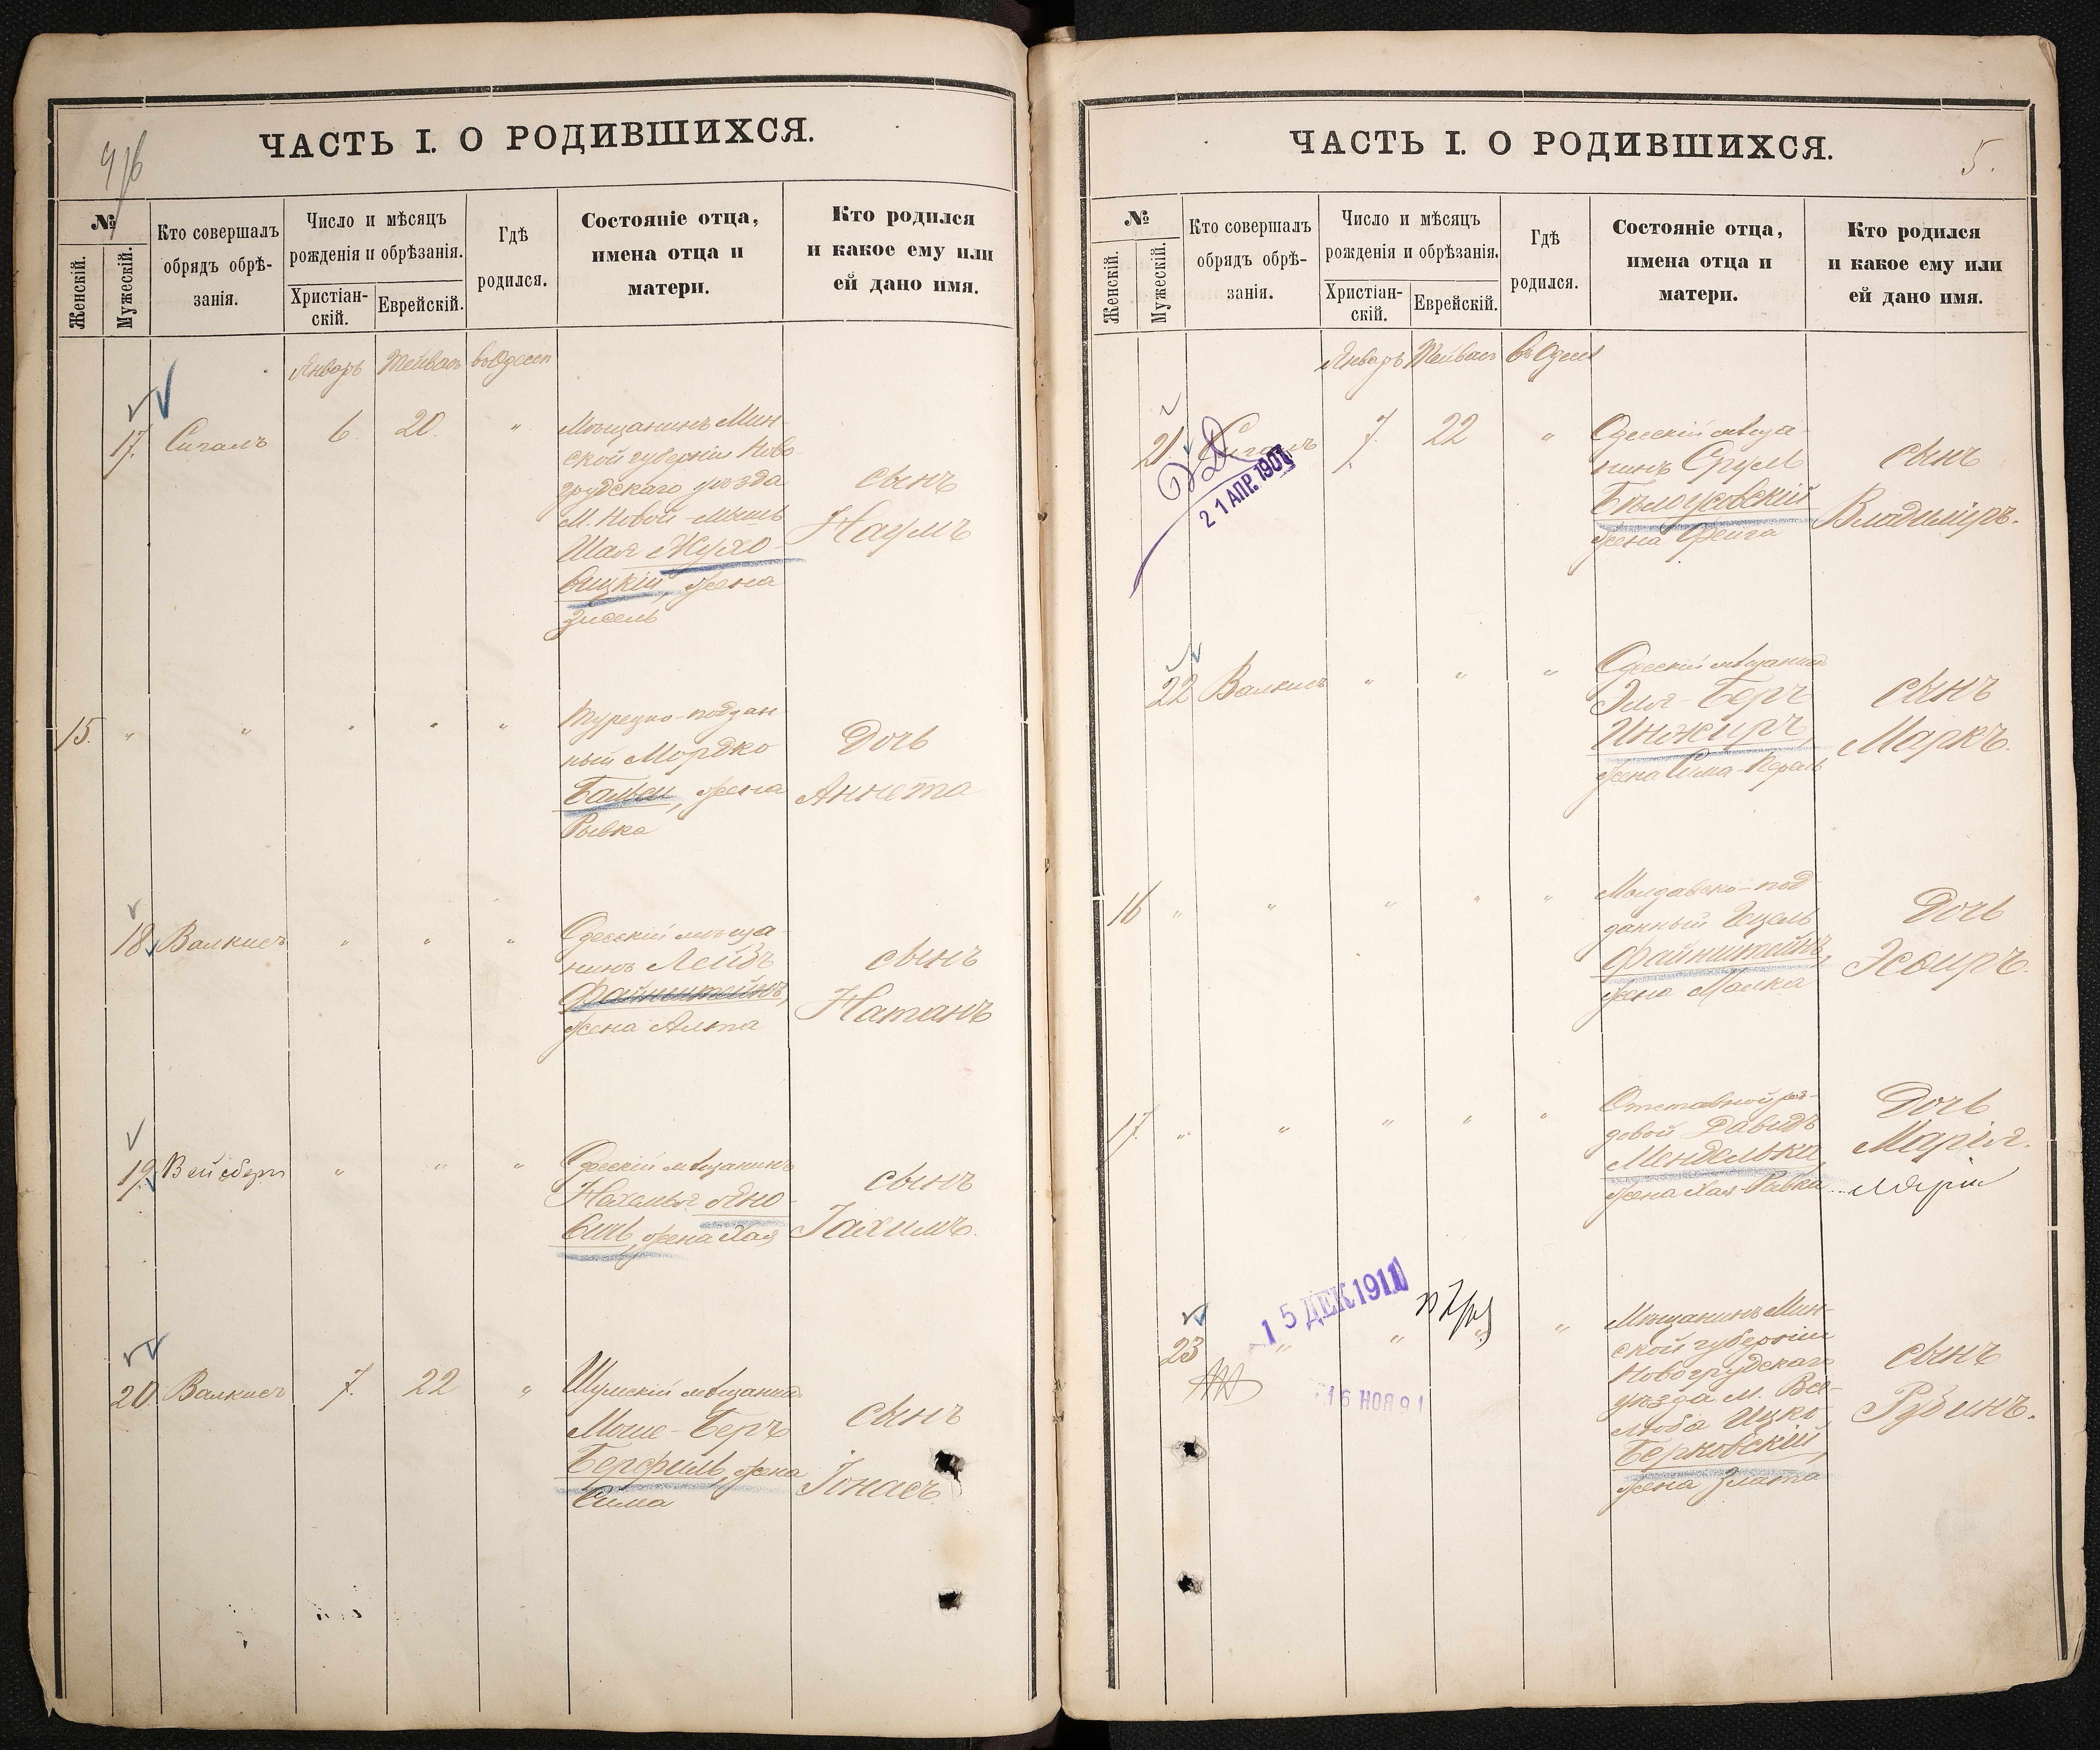 ЧАСТЬ I. О РОДИВШИХСЯ.
№
Женскій.
Мужескій.
Кто совершалъ
обрядъ обрѣ-
занія.
Число и мѣсяцъ
рожденія и обрѣзанія.
Христіан-
скій.
Еврейскій.
Гдѣ
родился.
Состояніе отца,
имена отца и
матери.
Кто родился
и какое ему или
ей дано имя.
Январь Тейвасъ въ Одессѣ
17. Сигалъ 6. 20. "
Мѣщанинъ Мин-
ской губерніи Ново-
грудскаго уѣзда
М. Новой-Мышь
Шая Жухо-
вицкій, жена
Зисель
сынъ
Наумъ
15. " " " " "
Турецко-поддан
ный Мордко
жена
Рывка
Дочь
Аннета
18. Валкисъ " " "
Одесскій мѣща-
нинъ Лейбъ
Файнштейнъ,
жена Алта
сынъ
Натанъ
19. Вейсбергъ " " "
Одесскій мѣщанинъ
Нахемья Яно-
вичъ, жена Хая
сынъ
Іахимъ.
20. Валкисъ 7. 22 "
Шумскій мѣщанинъ
Моше-Беръ
Берфиль, жена
Сима
сынъ
Іонасъ.
ЧАСТЬ I. О РОДИВШИХСЯ.
5.
№
Женскій.
Мужескій.
Кто совершалъ
обрядъ обрѣ-
занія.
Число и мѣсяцъ
рожденія и обрѣзанія.
Христіан-
скій.
Еврейскій.
Гдѣ
родился.
Состояніе отца,
имена отца и
матери.
Кто родился
и какое ему или
ей дано имя.
Январь Тейвасъ въ Одессѣ
21. Сигалъ 7. 22 "
21 АПР. 1907
Одесскій мѣща-
нинъ Сруль
Бѣлоусовскій
жена Фейга
сынъ
Владиміръ.
22 Валкисъ " " "
Одесскій мѣщанинъ
Эля-Беръ
Инжиръ,
жена Сима-Перель
сынъ
Маркъ.
16 " " " " "
Молдавско-под-
данный Ицель
Файнштейнъ,
жена Малка
Дочь
Эсѳирь.
17. " " " " "
Отставной ря-
довой Давидъ
жена Хая-Ривка
Дочь
Марія.
Марія
23 " " " "
15 ДЕК 1911
16 НОЯ 91
Мѣщанинъ Мин-
ской губерніи
Новогрудскаго
уѣзда м. Все-
люба Ицко
Берковскій,
жена Злата
сынъ
Рубинъ.